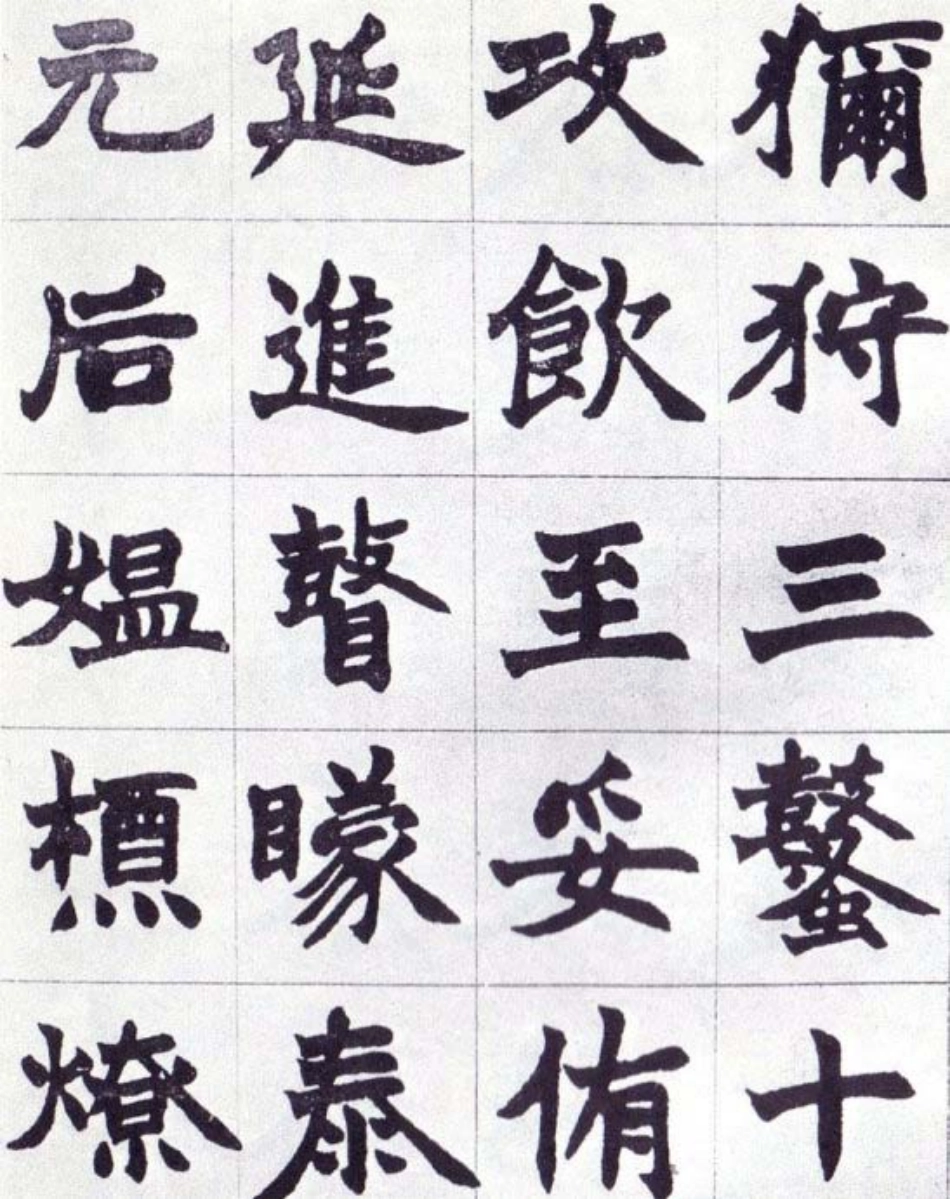 獮狩三鼜十
攻飲至妥侑
延進瞽矇泰
元后媼槱燎